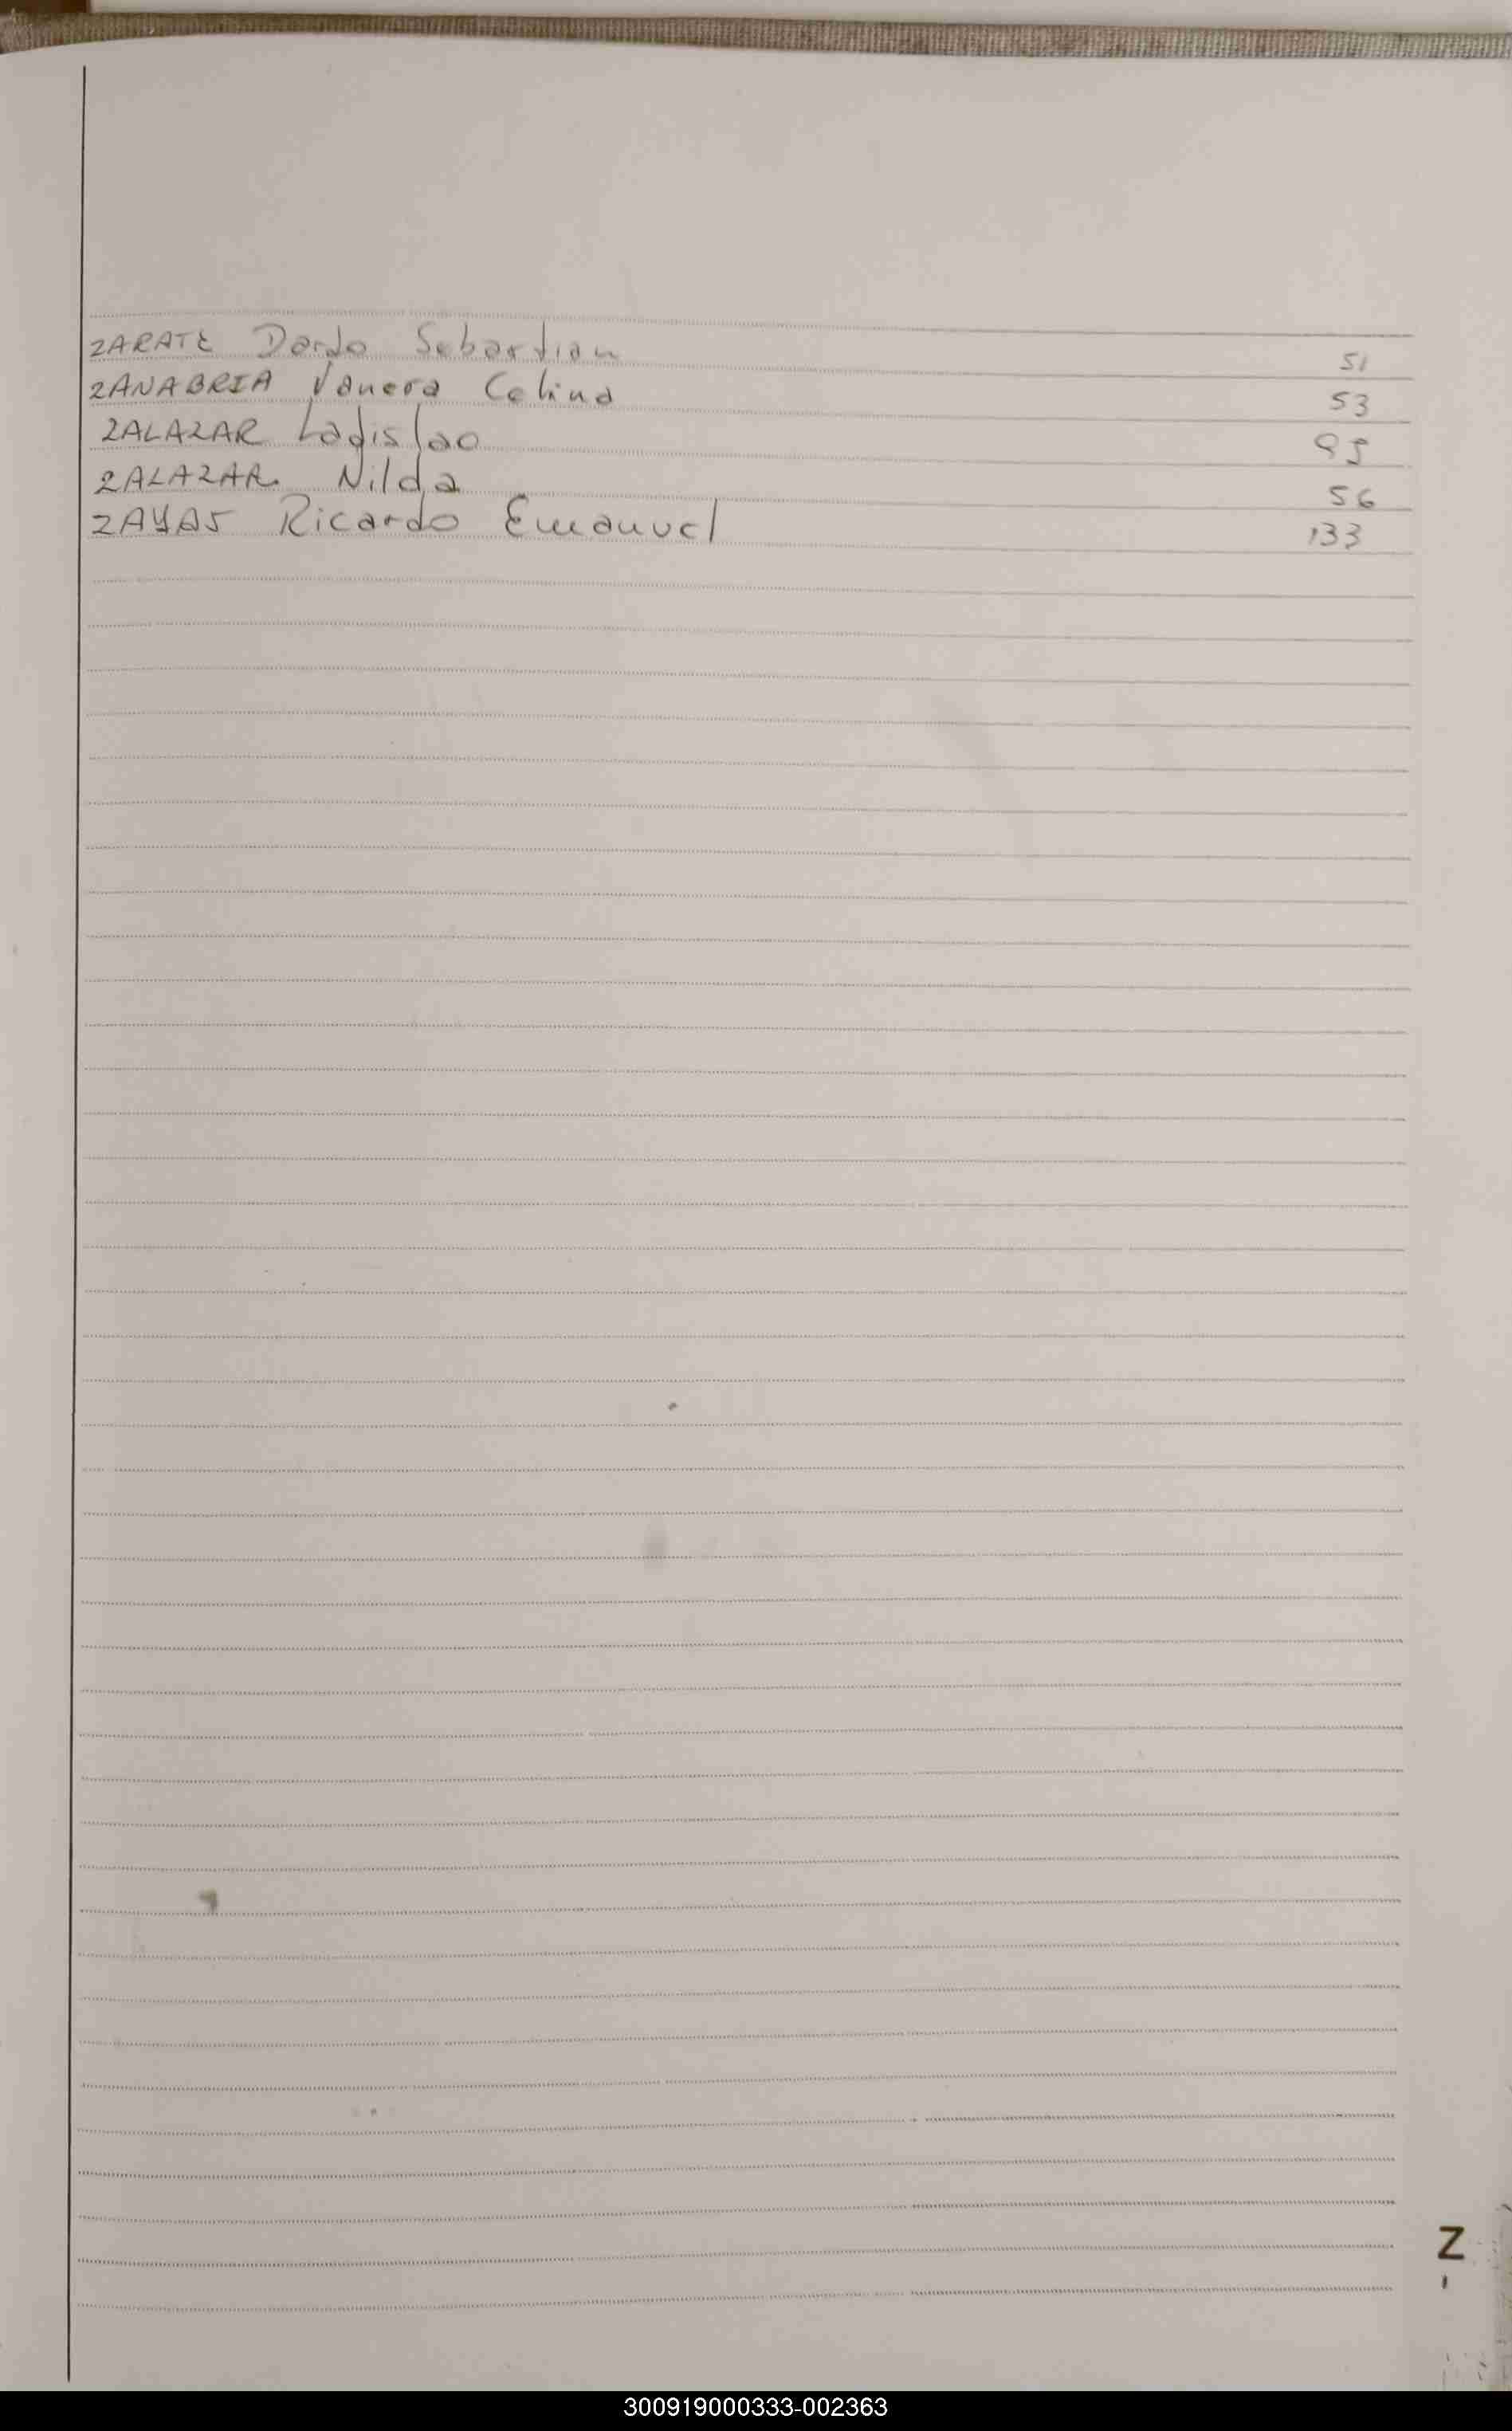 ZARATE Dardo Sebastian 51
ZANABRIA Vanera Celina 53
ZALAZAR Ladislao 95
ZALAZAR Nilda 56
ZAYAS Ricardo Emanuel 133
Z
300919000333-002363